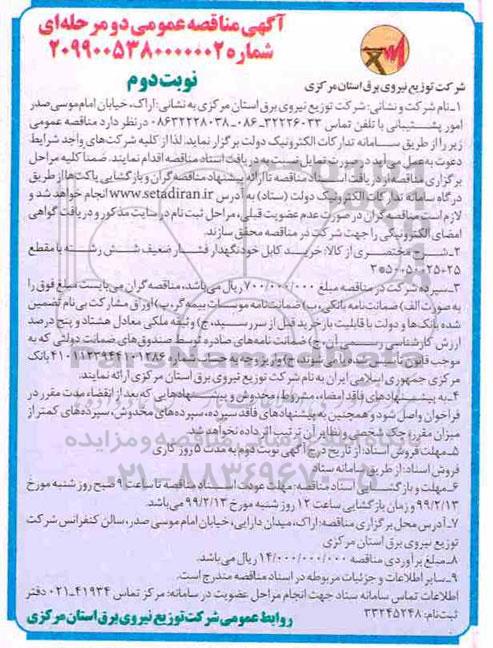 آگهی مناقصه عمومی دو مرحله‌ای
شماره ۲۰۹۹۰۰۵۳۸۰۰۰۰۰۰۲
نوبت دوم
شرکت توزیع نیروی برق استان مرکزی
۱ـ نام شرکت و نشانی: شرکت توزیع نیروی برق استان مرکزی به نشانی: اراک، خیابان امام موسی صدر
امور پشتیبانی با تلفن تماس ۳۲۲۲۶۰۳۳ـ۰۸۶ـ ۰۸۶۳۲۲۲۸۰۳۸ در نظر دارد مناقصه عمومی
زیر را از طریق سامانه تدارکات الکترونیک دولت برگزار نماید. لذا از کلیه شرکت‌های واجد شرایط
دعوت به عمل می‌آید در صورت تمایل نسبت به دریافت اسناد مناقصه اقدام نمایند. ضمنا کلیه مراحل
برگزاری مناقصه از دریافت اسناد مناقصه تا ارائه پیشنهاد مناقصه‌گران و بازگشایی پاکت‌ها از طریق
درگاه سامانه تدارکات الکترونیک دولت (ستاد) به آدرس www.setadiran.ir انجام خواهد شد و
لازم است مناقصه‌گران در صورت عدم عضویت قبلی، مراحل ثبت نام در سایت مذکور و دریافت گواهی
امضای الکترونیکی را جهت شرکت در مناقصه محقق سازند.
۲ـ شرح مختصری از کالا: خرید کابل خودنگهدار فشار ضعیف شش رشته با مقطع
۲۵+۲۵+۵۰+۵۰+
۳ـ سپرده شرکت در مناقصه مبلغ ۷۰۰/۰۰۰/۰۰۰ ریال می‌باشد، مناقصه‌گران می‌بایست مبلغ فوق را
به صورت الف) ضمانت‌نامه بانکی، ب) ضمانت‌نامه موسسات بیمه‌گر، پ) اوراق مشارکت بی‌نام تضمین
شده بانک‌ها و دولت با قابلیت بازخرید قبل از سررسید، ج) وثیقه ملکی معادل هشتاد و پنج درصد
ارزش کارشناسی رسمی آن، چ) ضمانت نامه‌های صادره توسط صندوق‌های ضمانت دولتی که به
موجب قانون تأسیس شده یا می‌شوند، ح) واریز وجه به حساب شماره ۴۱۰۱۱۳۳۹۴۴۱۰۱۲۸۶ بانک
مرکزی جمهوری اسلامی ایران به نام شرکت توزیع نیروی برق استان مرکزی ارائه نمایند.
۴ـ به پیشنهادهای فاقد امضاء، مشروط، مخدوش و پیشنهادهایی که بعد از انقضاء مدت مقرر در
فراخوان واصل شود و همچنین به پیشنهادهای فاقد سپرده، سپرده‌های مخدوش، سپرده‌های کمتر از
میزان مقرر، چک شخصی و نظایر آن ترتیب اثر داده نخواهد شد.
۵ـ مهلت فروش اسناد: از تاریخ درج آگهی نوبت دوم به مدت ۵ روز کاری
فروش اسناد: از طریق سامانه ستاد
۶ـ مهلت و بازگشایی اسناد مناقصه: مهلت عودت اسناد مناقصه تا ساعت ۹ صبح روز شنبه مورخ
۹۹/۲/۱۳ و زمان بازگشایی ساعت ۱۲ روز شنبه مورخ ۹۹/۲/۱۳ می‌باشد.
۷ـ آدرس محل برگزاری مناقصه: اراک، میدان دارایی، خیابان امام موسی صدر، سالن کنفرانس شرکت
توزیع نیروی برق استان مرکزی
۸ـ مبلغ برآوردی مناقصه ۱۴/۰۰۰/۰۰۰/۰۰۰ ریال می‌باشد.
۹ـ سایر اطلاعات و جزئیات مربوطه در اسناد مناقصه مندرج است.
اطلاعات تماس سامانه ستاد جهت انجام مراحل عضویت در سامانه: مرکز تماس ۴۱۹۳۴ـ۰۲۱ دفتر
ثبت نام: ۳۳۲۴۵۲۴۸
روابط عمومی شرکت توزیع نیروی برق استان مرکزی
پایگاه اطلاع رسانی مناقصه و مزایده
۰۲۱-۸۸۳۴۹۶۷۰-۵